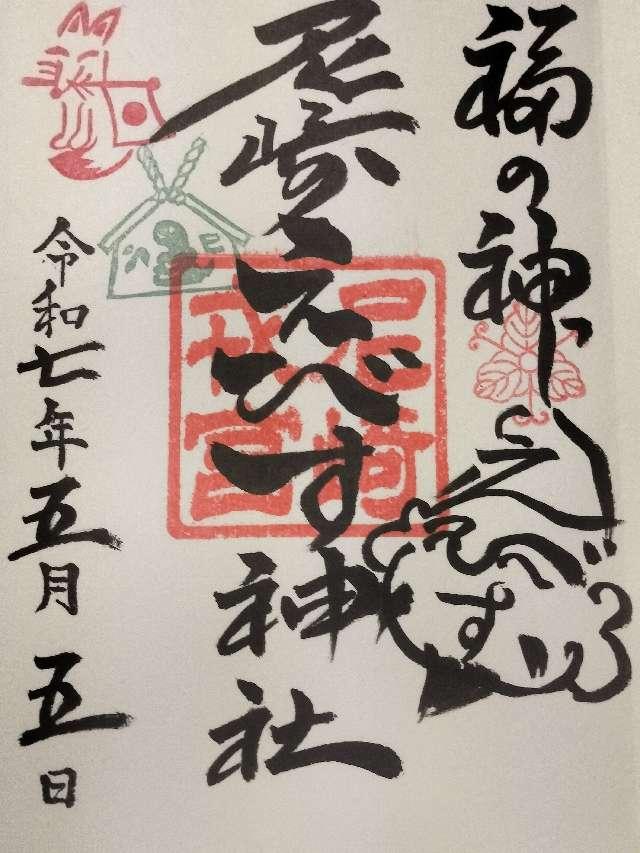 福の神
えべす
尼崎えべす神社
尼崎
戎宮
令和七年五月五日